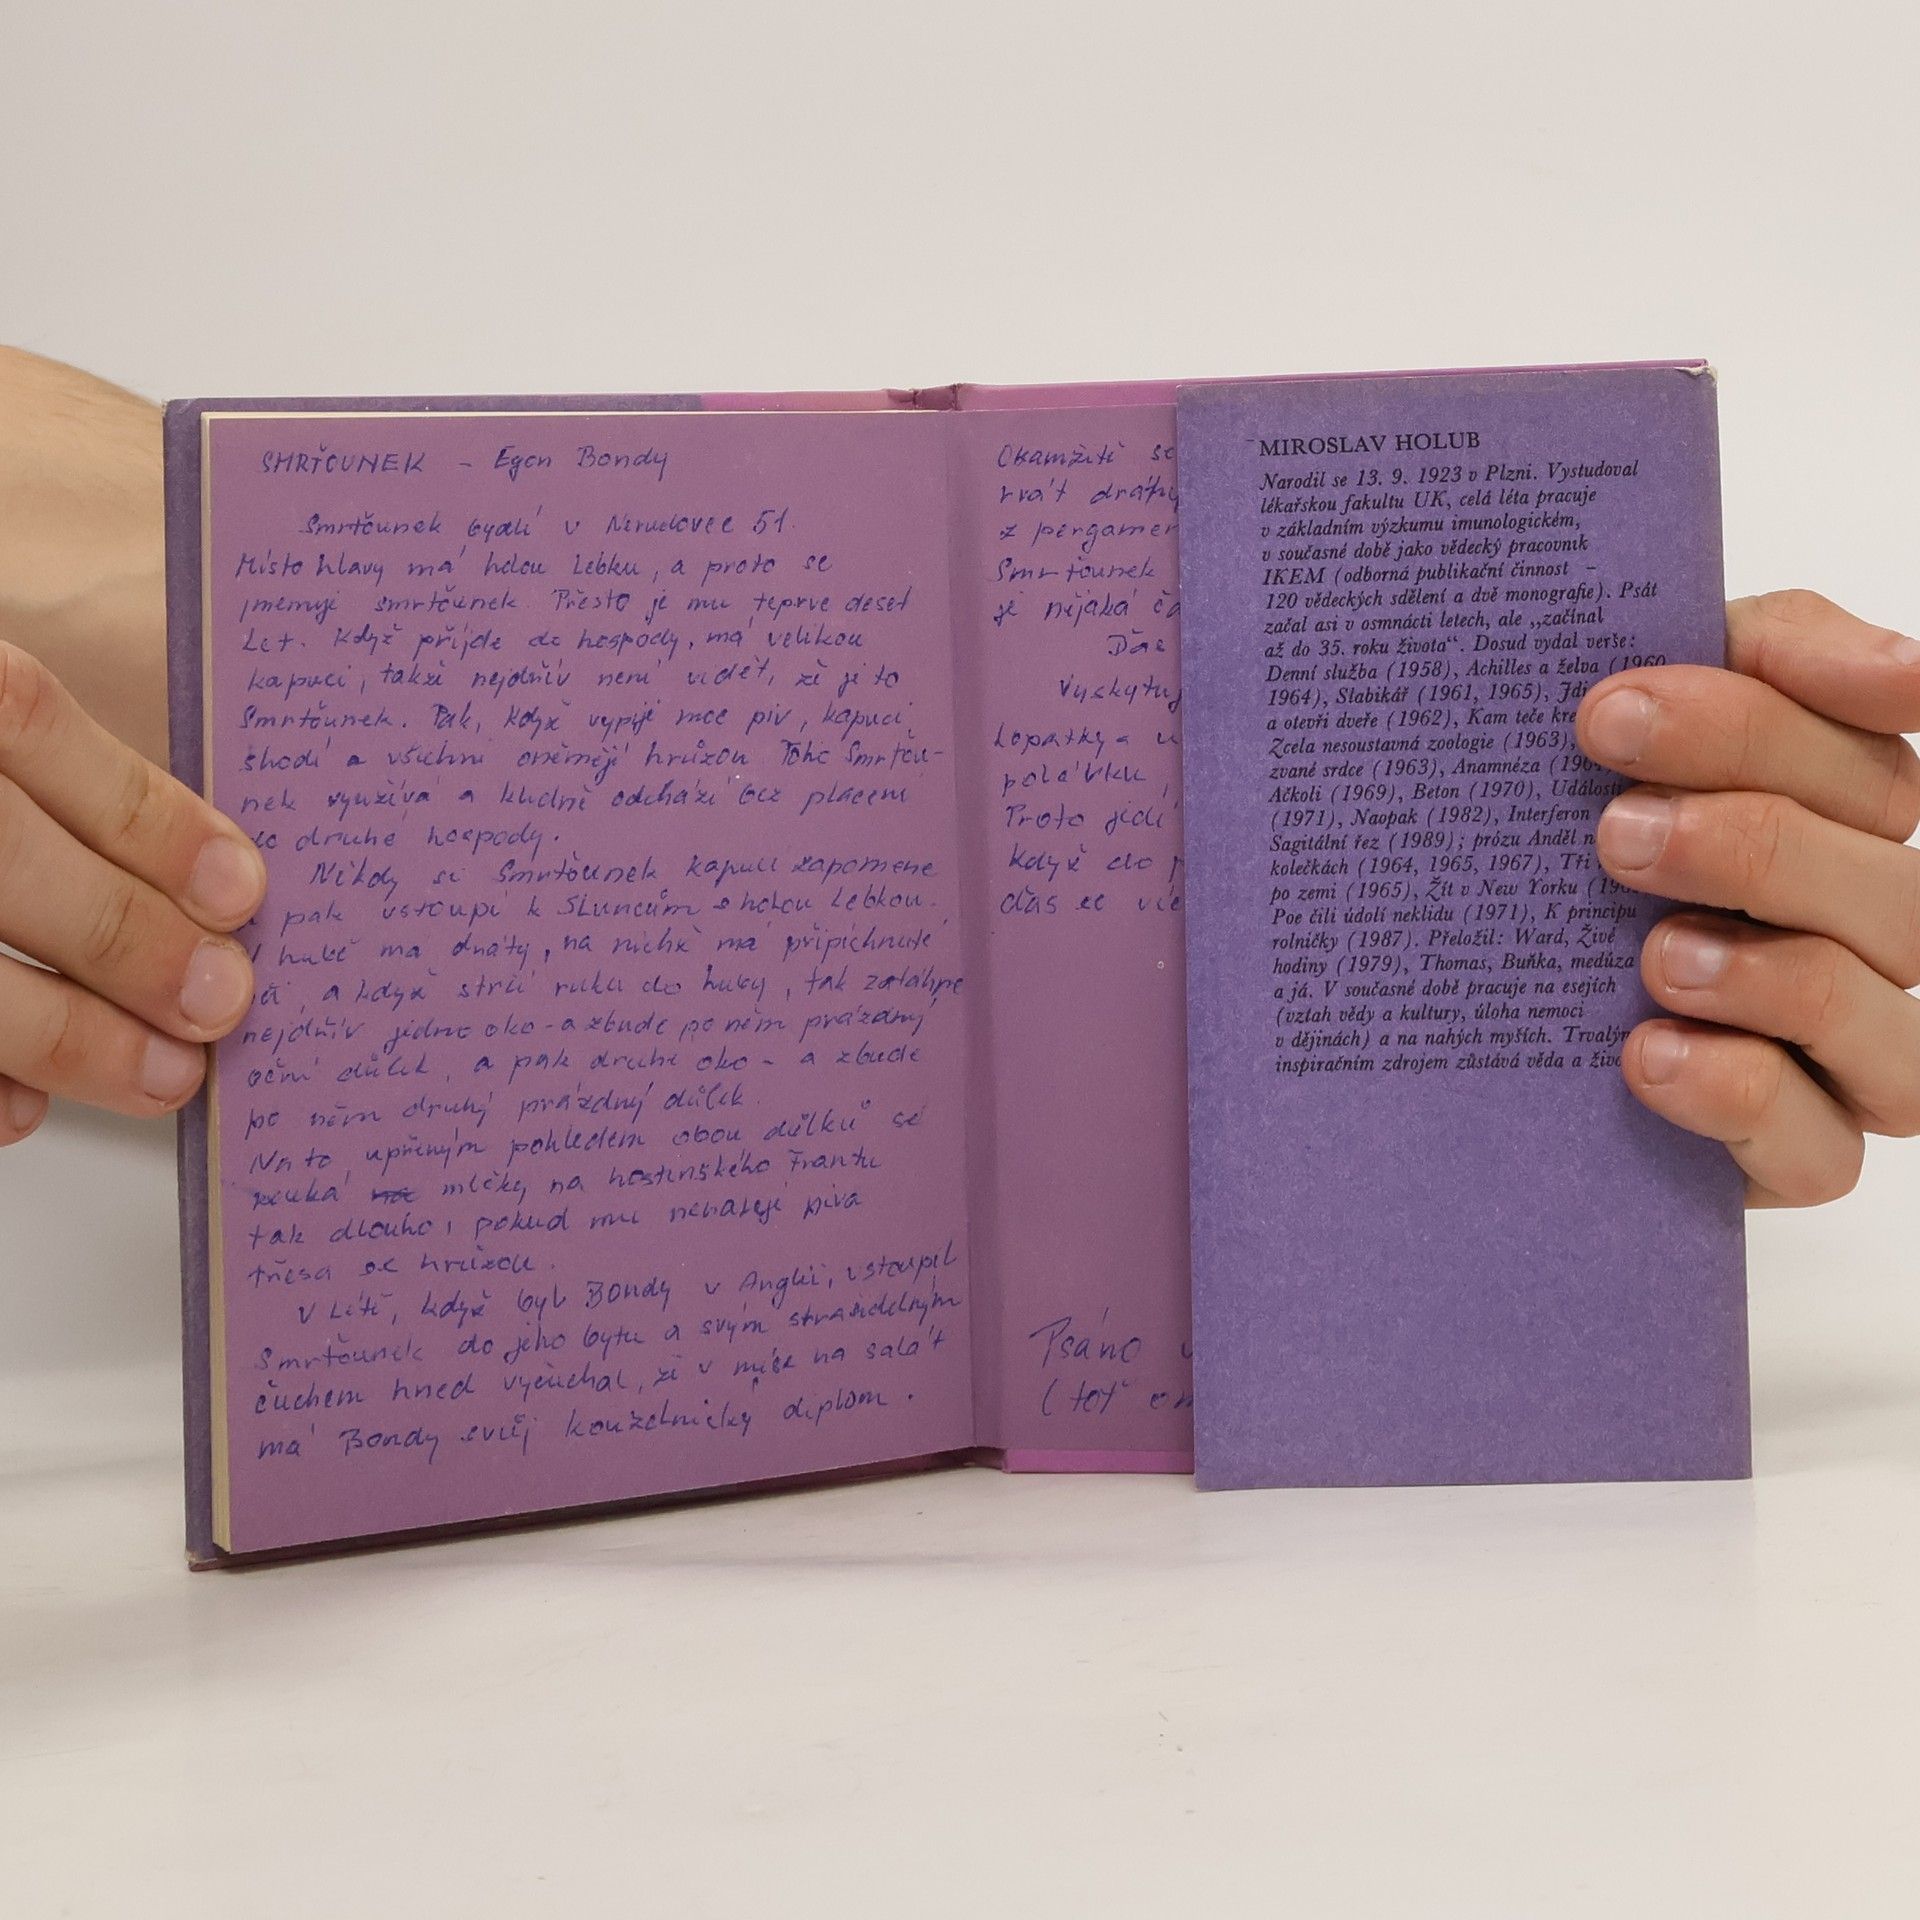 SMRŤOUNEK – Egon Bondy
Smrťounek bydlí v Nerudovce 51.
Místo hlavy má holou lebku, a proto se
jmenuje smrťounek. Přesto je mu teprve deset
let. Když přijde do hospody, má velikou
kapuci, takže nejdřív není vidět, že je to
Smrťounek. Pak, když vypije moc piv, kapuci
shodí a všichni oněmějí hrůzou. Toho Smrťou-
nek využívá a klidně odchází bez placení
do druhé hospody.
Někdy si Smrťounek kapuci zapomene
a pak vstoupí k Sluncům s holou lebkou.
V hubě má dráty, na nichž má připíchnuté
oči, a když strčí ruku do huby, tak zatáhne
nejdřív jedno oko – a zbude po něm prázdný
oční důlek, a pak druhé oko – a zbude
po něm druhý prázdný důlek.
Na to upřeným pohledem obou důlků se
kouká mlčky na hostinského Frantu
tak dlouho, pokud mu nenaleje piva
třesa se hrůzou.
V létě, když byl Bondy v Anglii, vstoupil
Smrťounek do jeho bytu a svým strašidelným
čuchem hned vyčuchal, že v míse na salát
má Bondy svůj kouzelnický diplom.
Okamžitě
rvát dráty
z pergamen
Smrťounek
je nějaká
Ďas
Vyskytuj
lopatky a
polévku,
Proto jedí
Když do
ďas se
Psáno
(toť
MIROSLAV HOLUB
Narodil se 13. 9. 1923 v Plzni. Vystudoval
lékařskou fakultu UK, celá léta pracuje
v základním výzkumu imunologickém,
v současné době jako vědecký pracovník
IKEM (odborná publikační činnost –
120 vědeckých sdělení a dvě monografie). Psát
začal asi v osmnácti letech, ale „začínal
až do 35. roku života“. Dosud vydal verše:
Denní služba (1958), Achilles a želva (1960
1964), Slabikář (1961, 1965), Jdi
a otevři dveře (1962), Kam teče
Zcela nesoustavná zoologie (1963),
zvané srdce (1963), Anamnéza
Ačkoli (1969), Beton (1970), Události
(1971), Naopak (1982), Interferon
Sagitální řez (1989); prózu Anděl
kolečkách (1964, 1965, 1967), Tři
po zemi (1965), Žít v New Yorku
Poe čili údolí neklidu (1971), K principu
rolničky (1987). Přeložil: Ward, Živé
hodiny (1979), Thomas, Buňka, medúza
a já. V současné době pracuje na esejích
(vztah vědy a kultury, úloha nemoci
v dějinách) a na nahých myších. Trvalým
inspiračním zdrojem zůstává věda a